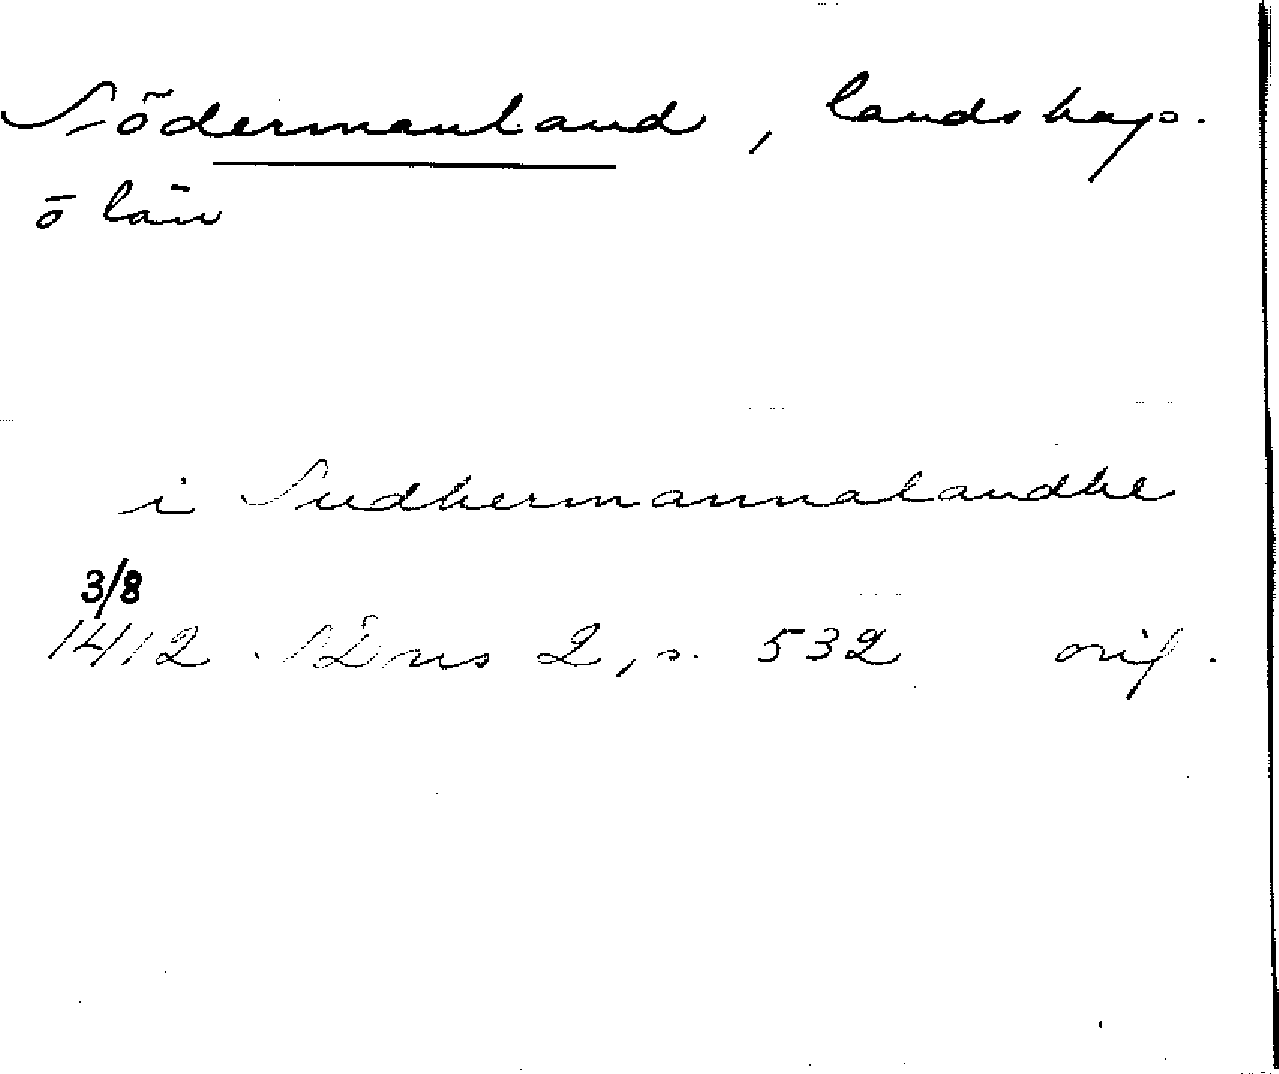 Södermanland, landskap.
o län
i Sudhermannalandhe
3/8
1412 SDns 2, s. 532 orig.